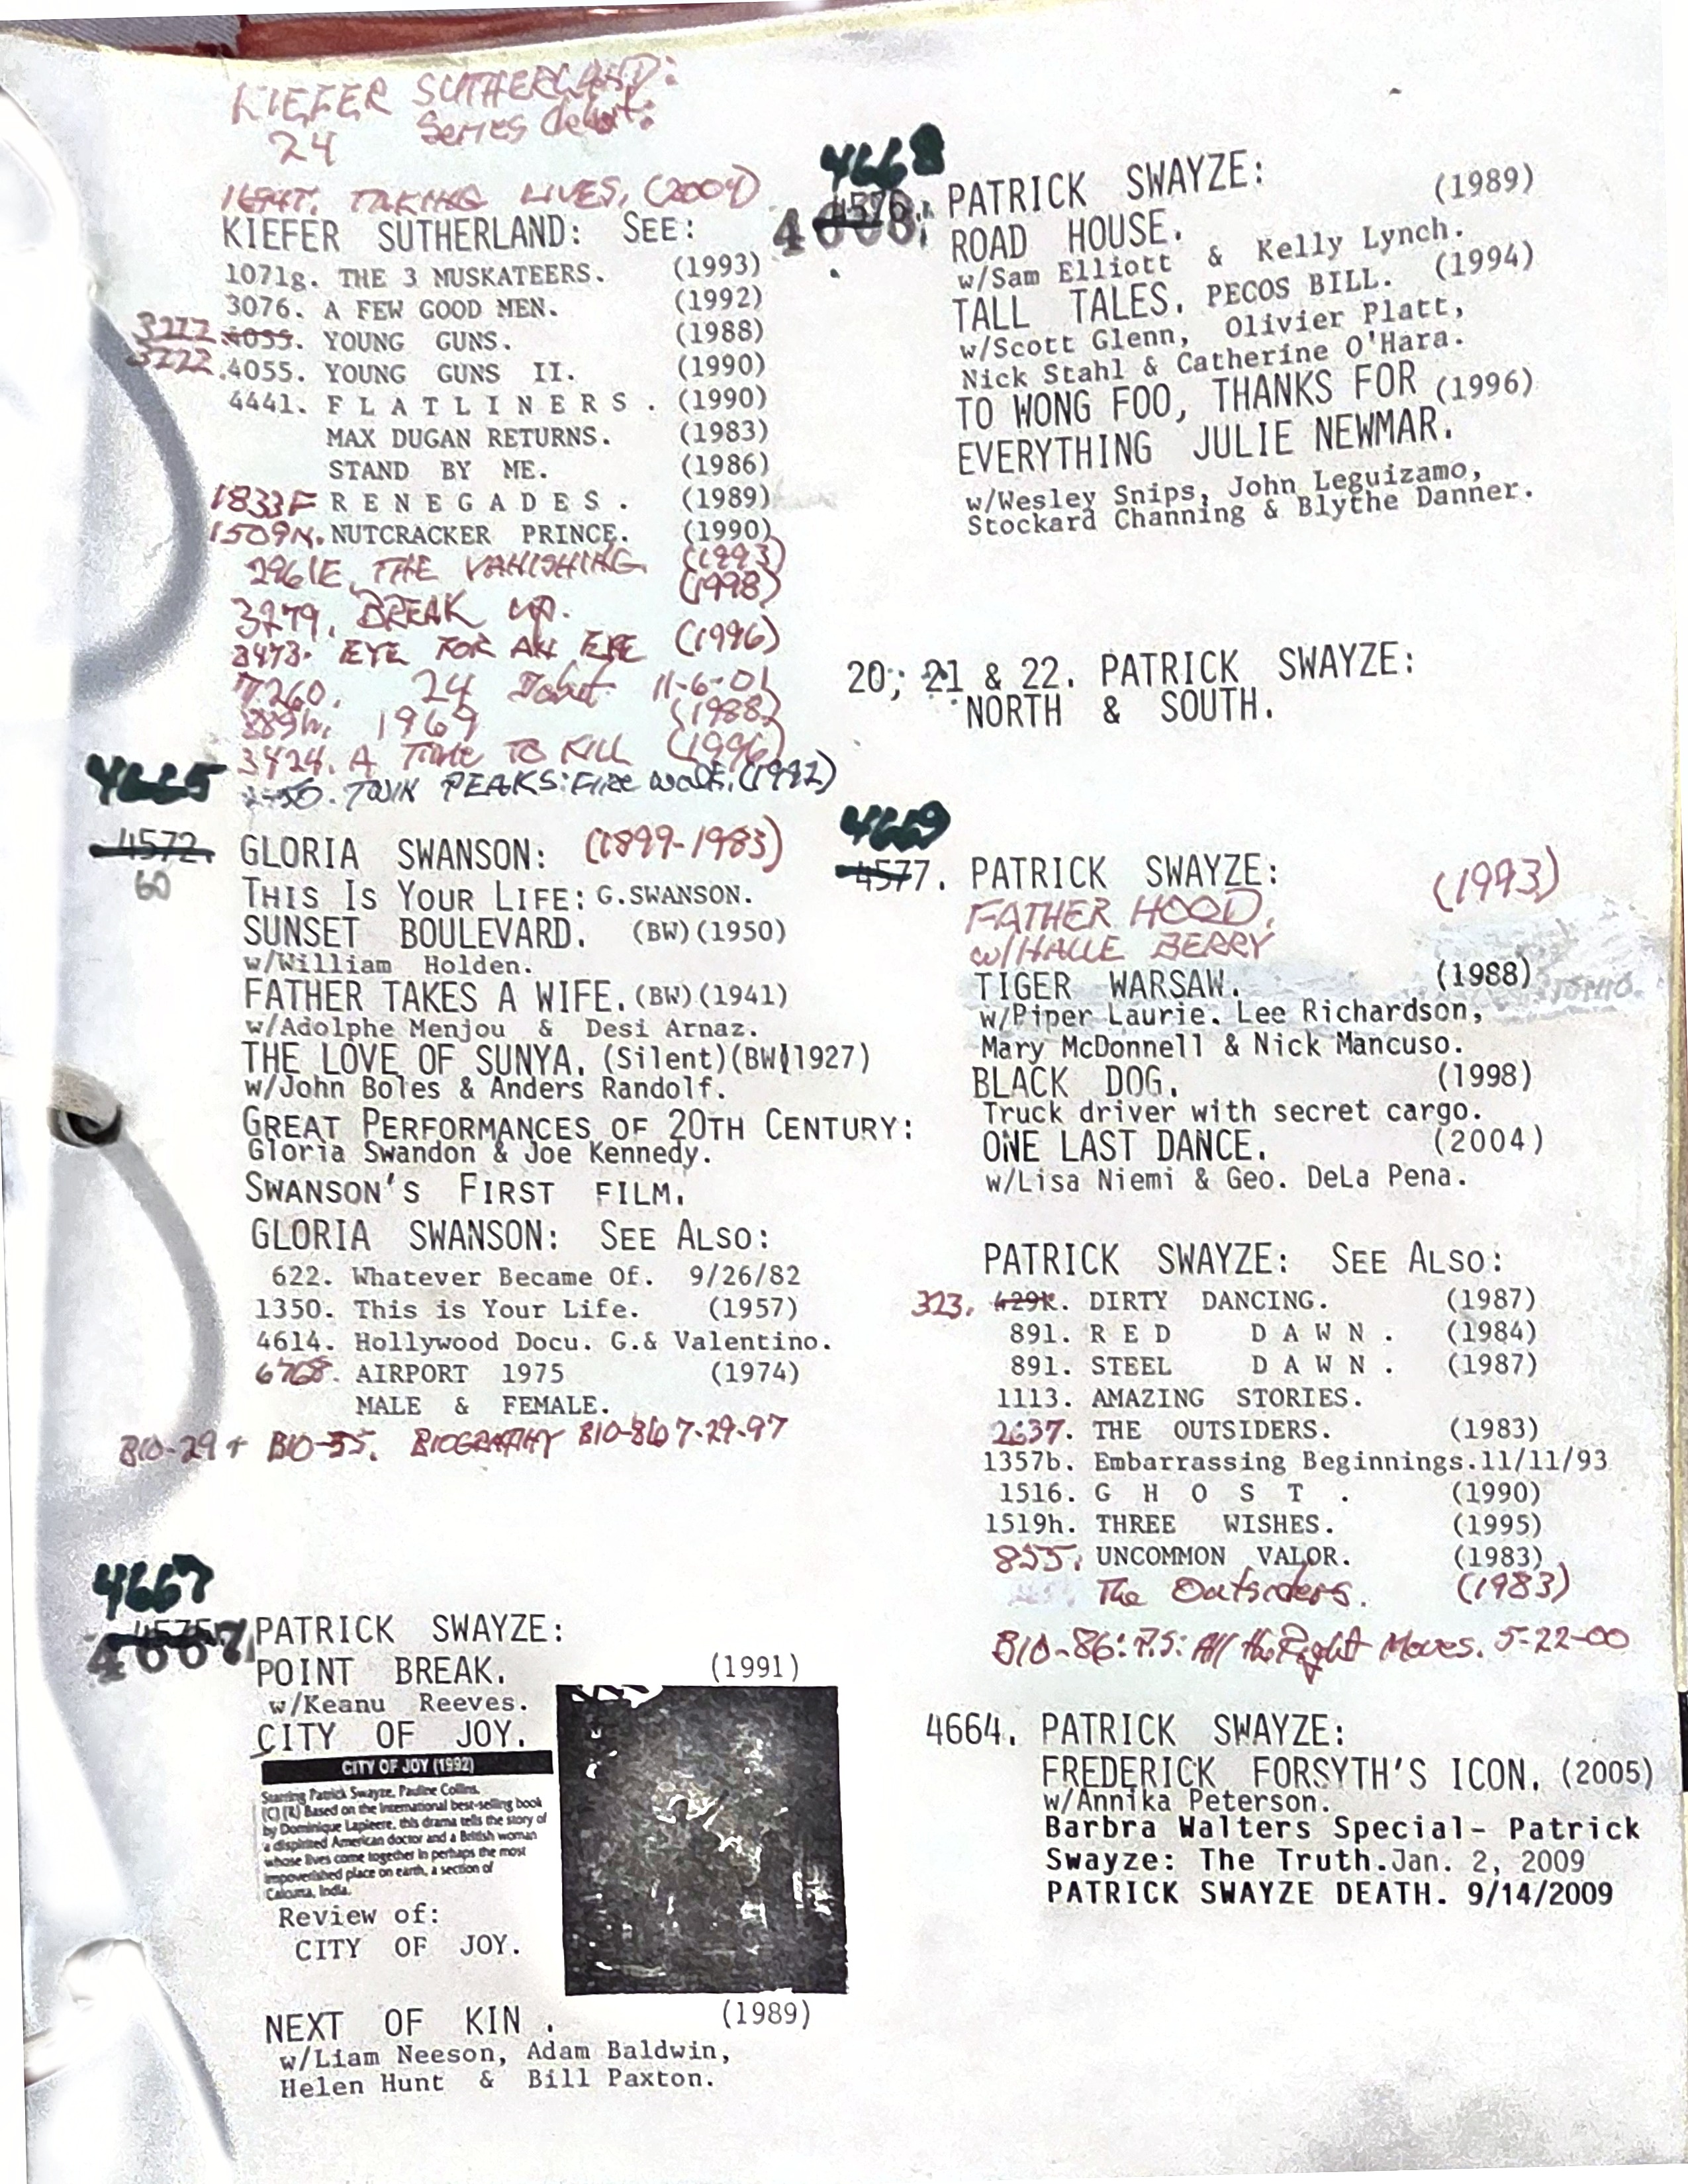 KIEFER SUTHERLAND:
24 Series debut:
TAKING LIVES. (2004)
KIEFER SUTHERLAND: SEE:
1071g. THE 3 MUSKATEERS. (1993)
3076. A FEW GOOD MEN. (1992)
3222 4055. YOUNG GUNS. (1988)
3222 .4055. YOUNG GUNS II. (1990)
4441. F L A T L I N E R S . (1990)
MAX DUGAN RETURNS. (1983)
STAND BY ME. (1986)
1833F R E N E G A D E S . (1989)
1509N. NUTCRACKER PRINCE. (1990)
2961E. THE VANISHING (1993)
3279. BREAK UP. (1998)
3473. EYE FOR AN EYE (1996)
7260. 24 Debut 11-6-01
889h. 1969 (1988)
3424. A TIME TO KILL (1996)
TWIN PEAKS: Fire Walk. (1992)
4665
4572. GLORIA SWANSON: (1899-1983)
60
THIS IS YOUR LIFE: G.SWANSON.
SUNSET BOULEVARD. (BW)(1950)
w/William Holden.
FATHER TAKES A WIFE. (BW)(1941)
w/Adolphe Menjou & Desi Arnaz.
THE LOVE OF SUNYA. (Silent)(BW)(1927)
w/John Boles & Anders Randolf.
GREAT PERFORMANCES OF 20TH CENTURY:
Gloria Swandon & Joe Kennedy.
SWANSON'S FIRST FILM.
GLORIA SWANSON: SEE ALSO:
622. Whatever Became Of. 9/26/82
1350. This is Your Life. (1957)
4614. Hollywood Docu. G.& Valentino.
6768. AIRPORT 1975 (1974)
MALE & FEMALE.
BIO-29 + BIO-55. BIOGRAPHY BIO-86 7-29-97
4667
4575.
4667 PATRICK SWAYZE:
POINT BREAK. (1991)
w/Keanu Reeves.
CITY OF JOY.
CITY OF JOY (1992)
Starring Patrick Swayze, Pauline Collins.
(C) (R) Based on the international best-selling book
by Dominique Lapierre, this drama tells the story of
a dispirited American doctor and a British woman
whose lives come together in perhaps the most
impoverished place on earth, a section of
Calcutta, India.
Review of:
CITY OF JOY.
NEXT OF KIN . (1989)
w/Liam Neeson, Adam Baldwin,
Helen Hunt & Bill Paxton.
4668
4576.
4668. PATRICK SWAYZE:
ROAD HOUSE. (1989)
w/Sam Elliott & Kelly Lynch.
TALL TALES. PECOS BILL. (1994)
w/Scott Glenn, Olivier Platt,
Nick Stahl & Catherine O'Hara.
TO WONG FOO, THANKS FOR (1996)
EVERYTHING JULIE NEWMAR.
w/Wesley Snips, John Leguizamo,
Stockard Channing & Blythe Danner.
20; 21 & 22. PATRICK SWAYZE:
NORTH & SOUTH.
4669
4577. PATRICK SWAYZE:
FATHER HOOD. (1993)
w/HALLE BERRY
TIGER WARSAW. (1988)
w/Piper Laurie. Lee Richardson,
Mary McDonnell & Nick Mancuso.
BLACK DOG. (1998)
Truck driver with secret cargo.
ONE LAST DANCE. (2004)
w/Lisa Niemi & Geo. DeLa Pena.
PATRICK SWAYZE: SEE ALSO:
323. 429k. DIRTY DANCING. (1987)
891. R E D D A W N . (1984)
891. STEEL D A W N . (1987)
1113. AMAZING STORIES.
2637. THE OUTSIDERS. (1983)
1357b. Embarrassing Beginnings.11/11/93
1516. G H O S T . (1990)
1519h. THREE WISHES. (1995)
855. UNCOMMON VALOR. (1983)
The Outsiders. (1983)
BIO-86: P.S: All the Right Moves. 5-22-00
4664. PATRICK SWAYZE:
FREDERICK FORSYTH'S ICON. (2005)
w/Annika Peterson.
Barbra Walters Special- Patrick
Swayze: The Truth.Jan. 2, 2009
PATRICK SWAYZE DEATH. 9/14/2009